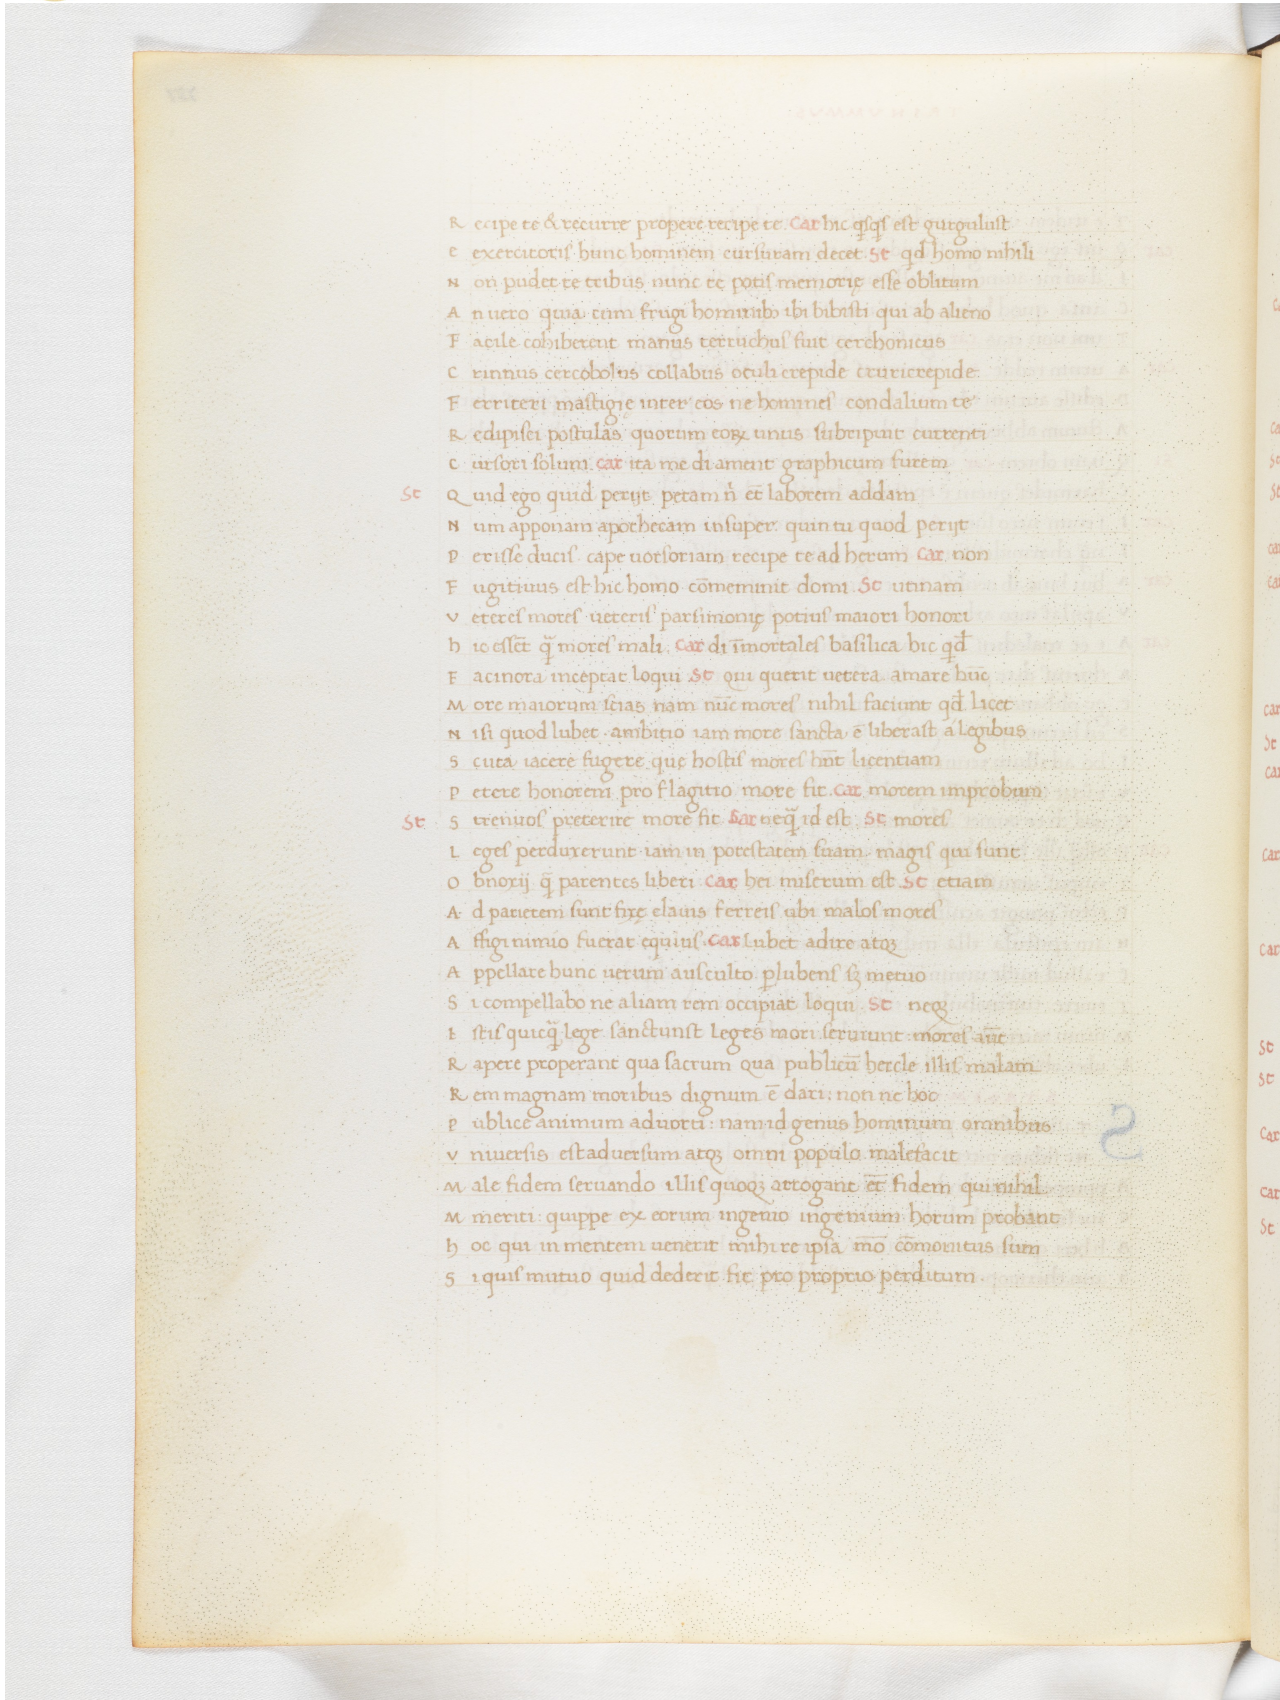 Recipe te & recurre propere recipe te. Car hic qͥsqͥs est gurguliust
Eexercitotis hunc hominem cursuram decet. St qd homo nihili
Non pudet te tribus nunc te potis memorię esse oblitum
An uero quia cum frugi hominibꝫ ibi bibisti qui ab alieno
Facile cohiberent manus terruchus fuit cerchonicus
Crinnus cercobolus collabus oculicrepide cruricrepide.
Ferriteri mastigię inter eos ne homines condalium te
Redipisci postulas quorum eoꝝ unus subripuit currenti
Cursori solum. car ita me di ament graphicum furem
St Quid ego quid perijt petam ń et laborem addam
Num apponam apothecam insuper. quin tu quod perijt
Perisse ducis cape uorsoriam recipe te ad herum Car. non
Fugitiuus est hic homo cōmeminit domi. St utinam
Veteres mores ueteris parsimonię potius maiori honori
hic essēt q̄ mores mali. Car di īmortales basilica hic qͥd
Facinora inceptat loqui. St Qui querit uetera amare hūc
More maiorum scias nam nūc mores nihil faciunt qd licet
Nisi quod lubet. ambitio iam more sancta ē liberast a legibus
Scuta iacere fugere quę hostis mores hn̄t licentiam
Petere honorem pro flagitio more fit. Car morem improbum
St Strenuos preterire more fit Car neq̄ id est. St mores
Leges perduxerunt iam in potestatem suam. magis qui sunt
Obnoxij q̄ parentes liberi. Car hei miserum est. St etiam
Ad parietem sunt fixę clauis ferreis ubi malos mores
Affigi nimio fuerat equius. Car Lubet adire atqꝫ
Appellare hunc uerum ausculto ꝑlubens sꝫ metuo
Si compellabo ne aliam rem occipiat loqui. St neqꝫ
Istis quicq̄ lege sanctunst leges mori seruiunt: mores aūt
Rapere properant qua sacrum qua publicū hercle illis malam
Rem magnam moribus dignum ē dari: non ne hoc
Publice animum aduorti: nam id genus hominum omnibus
Vniuersis est aduersum atqꝫ omni populo malefacit
Male fidem seruando illis quoqꝫ arrogant et fidem qui nihil
Mmeriti: quippe ex eorum ingenio ingenium horum probant
hoc qui in mentem uenerit mihi re ipsa mō cōmonitus sum
Si quis mutuo quid dederit fit pro proprio perditum